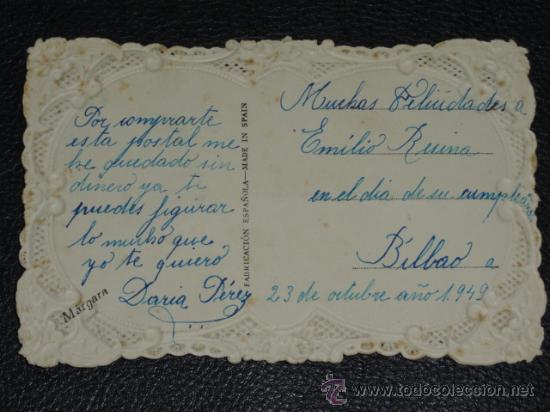 Por comprarte
esta postal me
he quedado sin
dinero ya te
puedes figurar
lo mucho que
yo te quiero
Daria Pérez
Margara
FABRICACION ESPAÑOLA—MADE IN SPAIN
Muchas Felicidades a
Emilio Resina
en el dia de su cumpleaños
Bilbao a
23 de octubre año 1949
todocoleccion
© www.todocoleccion.net